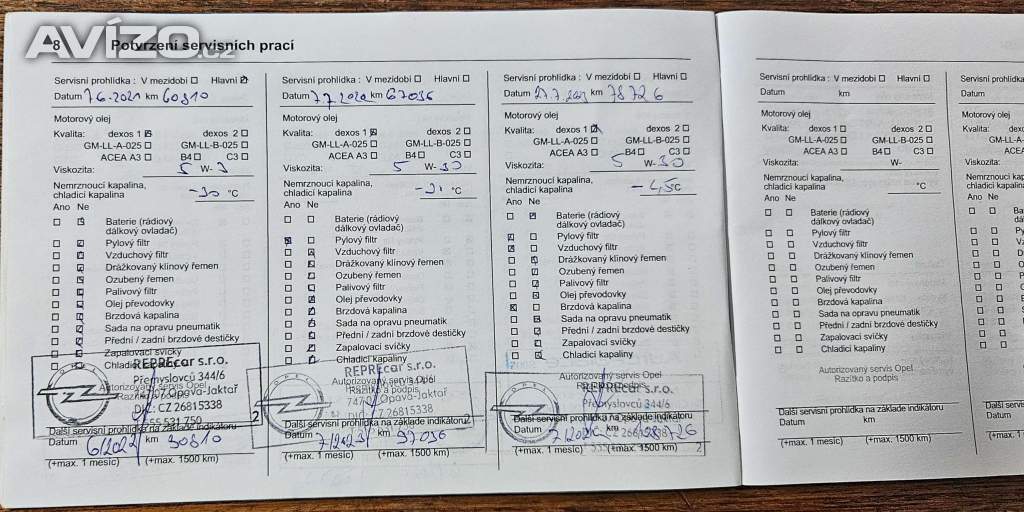 AVÍZO.cz
8 Potvrzení servisních prací
Servisní prohlídka : V mezidobí Hlavní
Datum 7.6.2021 km 60810
Motorový olej
Kvalita: dexos 1 dexos 2
GM-LL-A-025 GM-LL-B-025
ACEA A3 B4 C3
Viskozita: 5 W-3
Nemrznoucí kapalina,
chladicí kapalina -30 °C
Ano Ne
Baterie (rádiový
dálkový ovladač)
Pylový filtr
Vzduchový filtr
Drážkovaný klínový řemen
Ozubený řemen
Palivový filtr
Olej převodovky
Brzdová kapalina
Sada na opravu pneumatik
Přední / zadní brzdové destičky
Zapalovací svíčky
Chladicí kapaliny
REPREcar s.r.o.
Přemyslovců 344/6
Autorizovaný servis Opel
Razítko a podpis
Opava-Jaktař
DIČ: CZ 26815338
2
Další servisní prohlídka na základe indikátoru
Datum 6/2022 km 90810
(+max. 1 mesíc) (+max. 1500 km)
Servisní prohlídka : V mezidobí Hlavní
Datum 7.7.2022 km 67036
Motorový olej
Kvalita: dexos 1 dexos 2
GM-LL-A-025 GM-LL-B-025
ACEA A3 B4 C3
Viskozita: 5 W-30
Nemrznoucí kapalina,
chladicí kapalina °C
Ano Ne
Baterie (rádiový
dálkový ovladač)
Pylový filtr
Vzduchový filtr
Drážkovaný klínový řemen
Ozubený řemen
Palivový filtr
Olej převodovky
Brzdová kapalina
Sada na opravu pneumatik
Přední / zadní brzdové destičky
Zapalovací svíčky
Chladicí kapaliny
REPREcar s.r.o.
Autorizovaný servis Opel
Razítko a podpis
Opava-Jaktař
DIČ: CZ 26815338
2
Další servisní prohlídka na základe indikátoru
Datum 7/2023 km 97036
(+max. 1 mesíc) (+max. 1500 km)
Servisní prohlídka : V mezidobí Hlavní
Datum km 78726
Motorový olej
Kvalita: dexos 1 dexos 2
GM-LL-A-025 GM-LL-B-025
ACEA A3 B4 C3
Viskozita: 5 W-30
Nemrznoucí kapalina,
chladicí kapalina °C
Ano Ne
Baterie (rádiový
dálkový ovladač)
Pylový filtr
Vzduchový filtr
Drážkovaný klínový řemen
Ozubený řemen
Palivový filtr
Olej převodovky
Brzdová kapalina
Sada na opravu pneumatik
Přední / zadní brzdové destičky
Zapalovací svíčky
Chladicí kapaliny
Autorizovaný servis Opel
REPREcar s.r.o.
Přemyslovců 344/6
2
Další servisní prohlídka na základe indikátoru
Datum km 108726
(+max. 1 mesíc) (+max. 1500 km)
Servisní prohlídka : V mezidobí Hlavní
Datum km
Motorový olej
Kvalita: dexos 1 dexos 2
GM-LL-A-025 GM-LL-B-025
ACEA A3 B4 C3
Viskozita: W-
Nemrznoucí kapalina,
chladicí kapalina °C
Ano Ne
Baterie (rádiový
dálkový ovladač)
Pylový filtr
Vzduchový filtr
Drážkovaný klínový řemen
Ozubený řemen
Palivový filtr
Olej převodovky
Brzdová kapalina
Sada na opravu pneumatik
Přední / zadní brzdové destičky
Zapalovací svíčky
Chladicí kapaliny
Autorizovaný servis Opel
Razítko a podpis
Další servisní prohlídka na základe indikátoru
Datum km
(+max. 1 mesíc) (+max. 1500 km)
Servisní
Datum
Motorový
Kvalita:
Viskozita:
Nemrznoucí
chladicí
Ano Ne
Další
Datum
(+max.